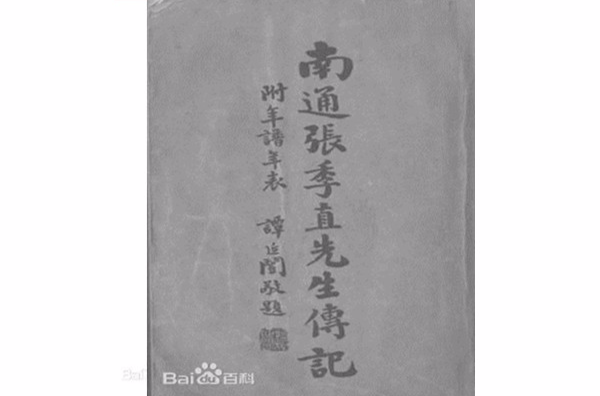 南通張季直先生傳記
附年譜年表 譚延闓敬題
Baidu百科